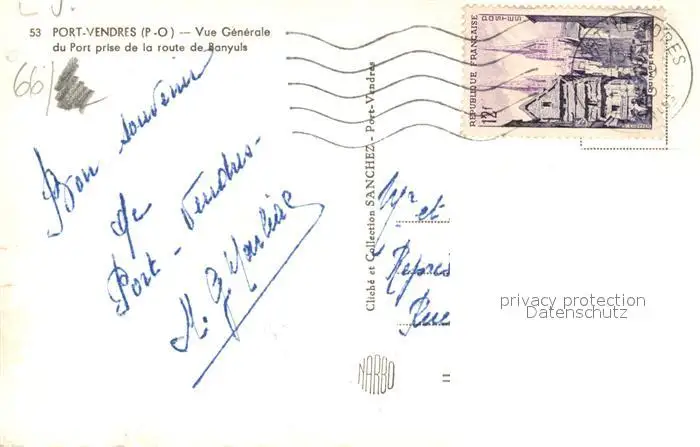 53 PORT-VENDRES (P-O) — Vue Générale
du Port prise de la route de Banyuls
66
Bon souvenir
de
Port - Vendres -
Cliché et Collection SANCHEZ - Port-Vendres
NARBO
REPUBLIQUE FRANÇAISE
POSTES
12f
QUIMPER
Mr et
Rue
privacy protection
Datenschutz